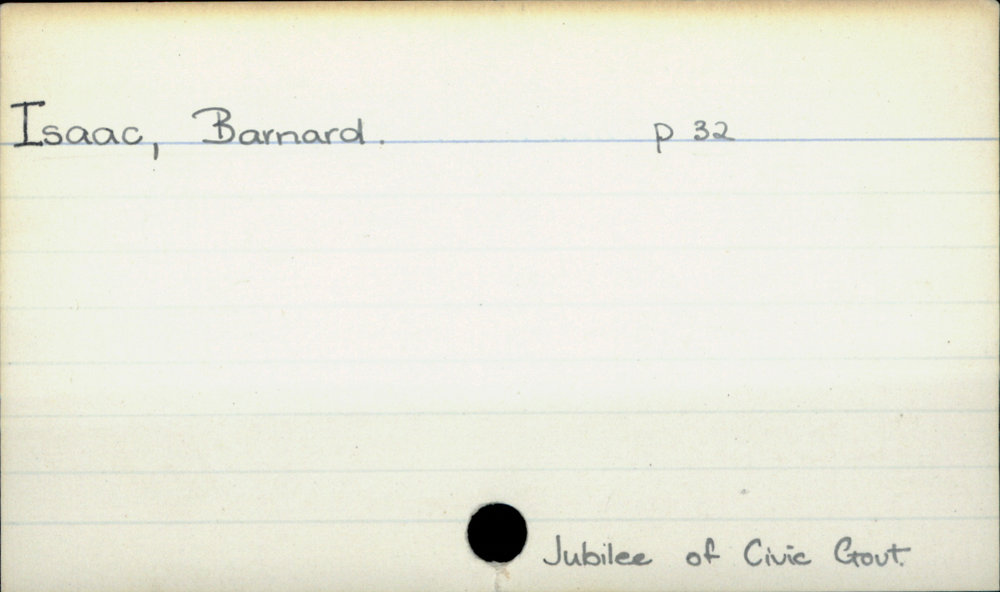 Isaac, Barnard. p 32
Jubilee of Civic Govt.